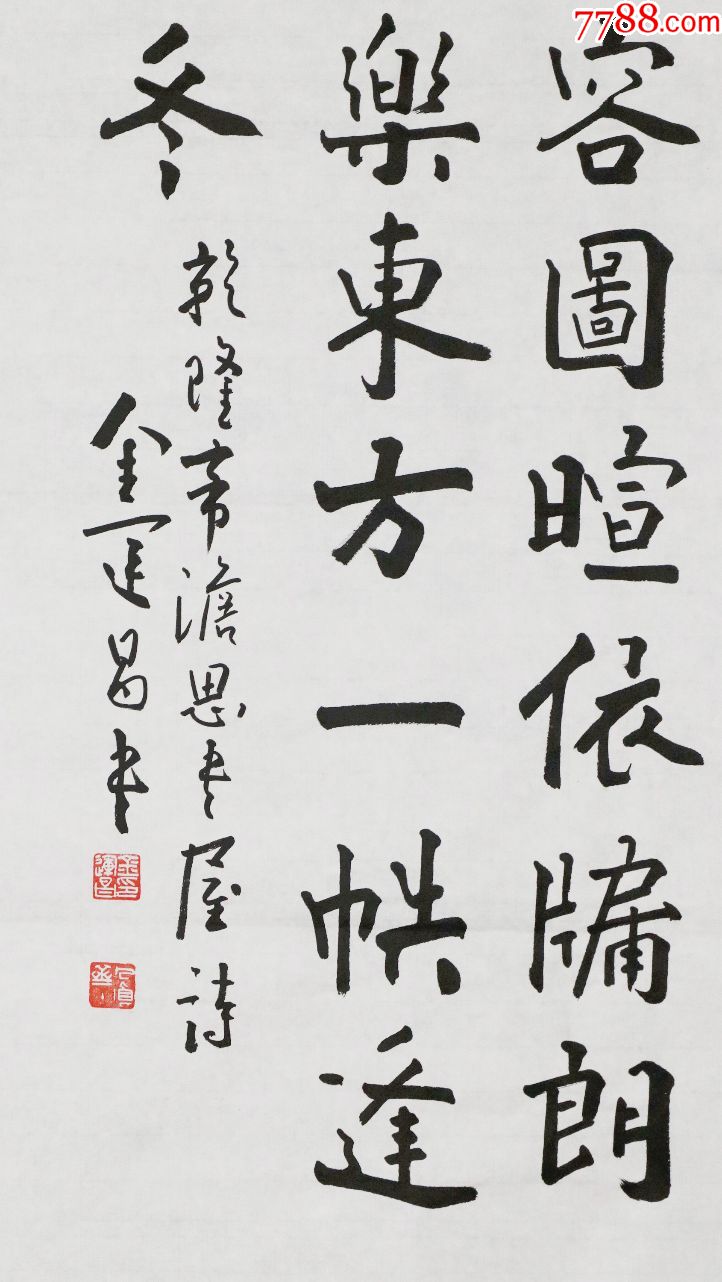 7788.com
容圖暄依牖朗
樂東方一帙逢
冬
乾隆帝澹思書屋詩
金運昌書